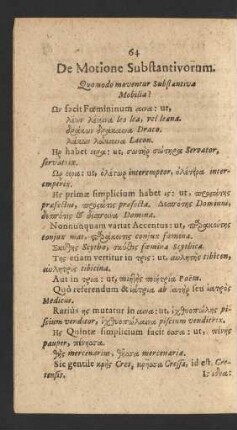 64
De Motione Substantivorum.
Quomodo moventur Substantiva
Mobilia?
Ων facit Fœmininum αινα: ut,
λέων λέαινα leo lea, vel leæna.
δράκων δράκαινα Draco.
λάκων λάκαινα Lacon.
Ηρ habet ειρα: ut, σωτὴρ σώτειρα Servator,
servatrix.
Ωρ ειρα: ut, interemptor, inter-
emptrix.
Ης primæ simplicium habet ις: ut,
præfectus, præfecta. Dominus,
Domina.
Nonnunquam variat Accentus: ut,
conjux mas, conjux fœmina.
Σκύθης Scytha, Scythica.
Της etiam vertitur in τρις: ut, αὐλητὴς tibicen,
αὐλητρὶς tibicina.
Aut in τρια: ut, ποιητὴς ποιήτρια Poëta.
Quò referendum & ἰάτρια ab ἰατὴρ seu ἰατρὸς
Medicus.
Rariùs ης mutatur in αινα: ut, pi-
scium venditor, piscium venditrix.
Ης Quintæ simplicium facit σσα: ut, πένης
pauper, πένησσα.
θὴς mercenarius, θῆσσα mercenaria.
Sic gentile κρὴς Cres, κρῆσσα Cressa, id est, Cre-
tensis.